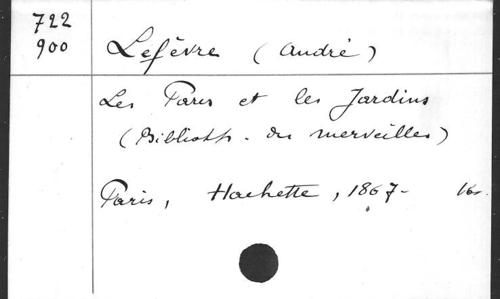 722
900
Lefèvre (André)
Les Parcs et les Jardins
(Biblioth. des merveilles)
Paris, Hachette, 1867-